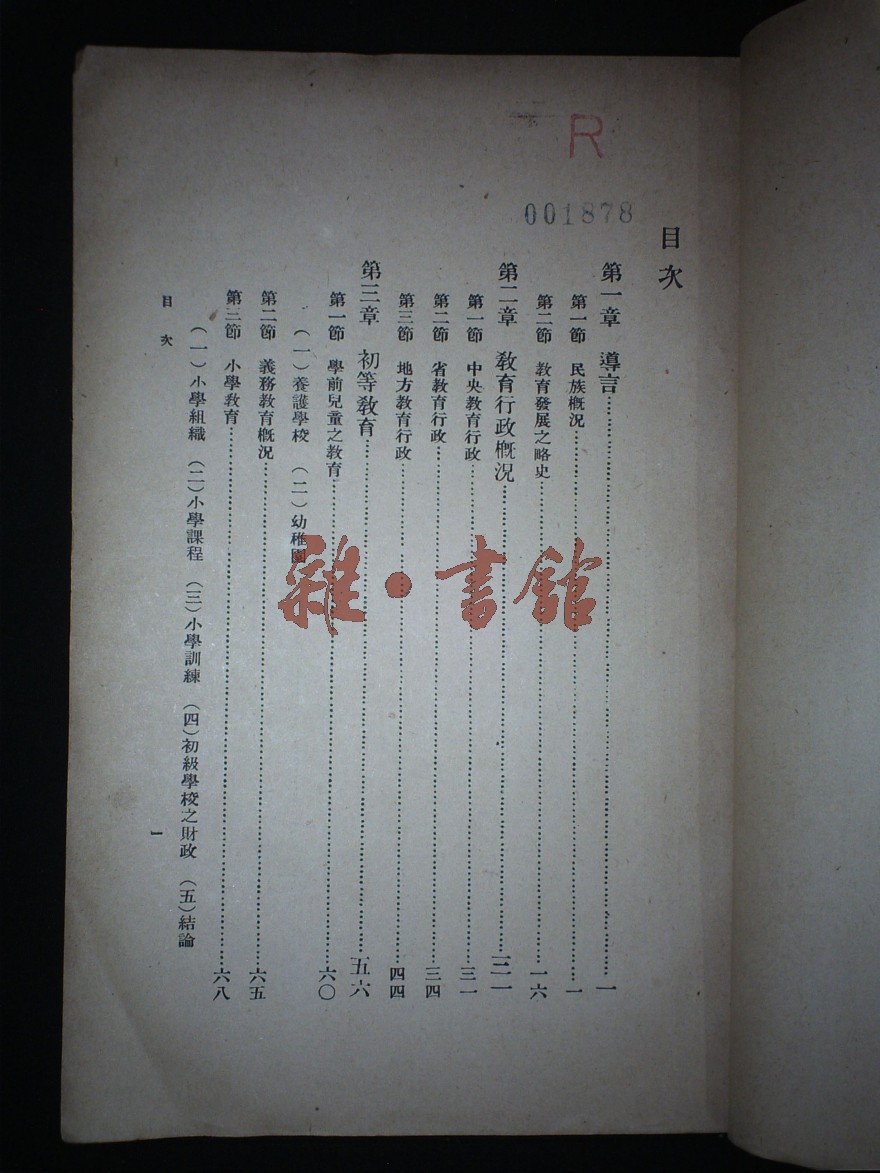 R
001878
目次
第一章 導言……一
第一節 民族概況……一
第二節 教育發展之略史……一六
第二章 教育行政概況……三一
第一節 中央教育行政……三一
第二節 省教育行政……三四
第三節 地方教育行政……四四
第三章 初等教育……五六
第一節 學前兒童之教育……六〇
（一）養護學校 （二）幼稚園
第二節 義務教育概況……六五
第三節 小學教育……六八
（一）小學組織 （二）小學課程 （三）小學訓練 （四）初級學校之財政 （五）結論
目次
一
雜·書館